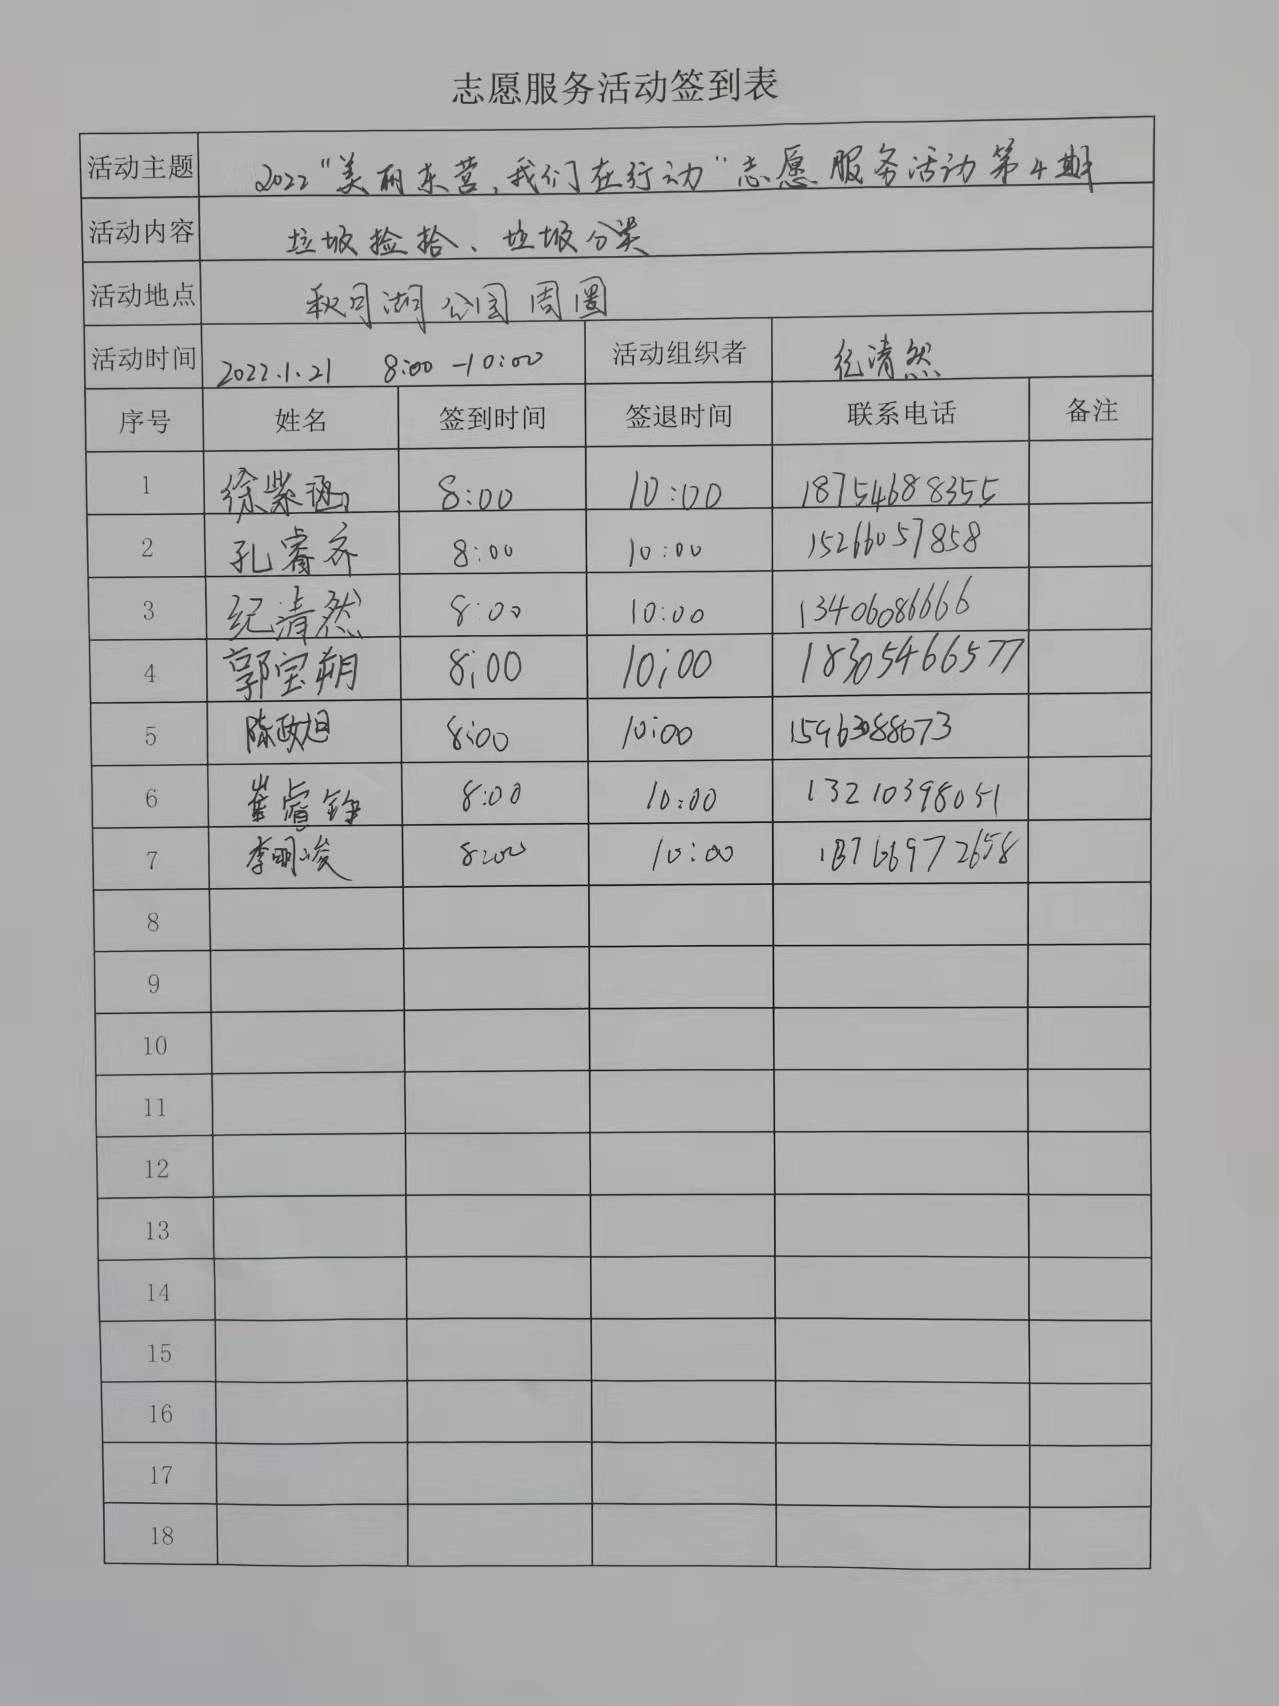 志愿服务活动签到表
活动主题 2022“美丽东营,我们在行动”志愿服务活动第4期
活动内容 垃圾捡拾、垃圾分类
活动地点 秋月湖公园周围
活动时间 2022.1.21 8:00-10:00 活动组织者 纪清然
序号 姓名 签到时间 签退时间 联系电话 备注
1 徐紫涵 8:00 10:00 18754688355
2 孔睿齐 8:00 10:00 15266057858
3 纪清然 8:00 10:00 13406086666
4 郭宝朔 8:00 10:00 18305466577
5 陈政旭 8:00 10:00 15963088673
6 崔睿铮 8:00 10:00 13210398051
7 李明峻 8:00 10:00 18766972658
8
9
10
11
12
13
14
15
16
17
18